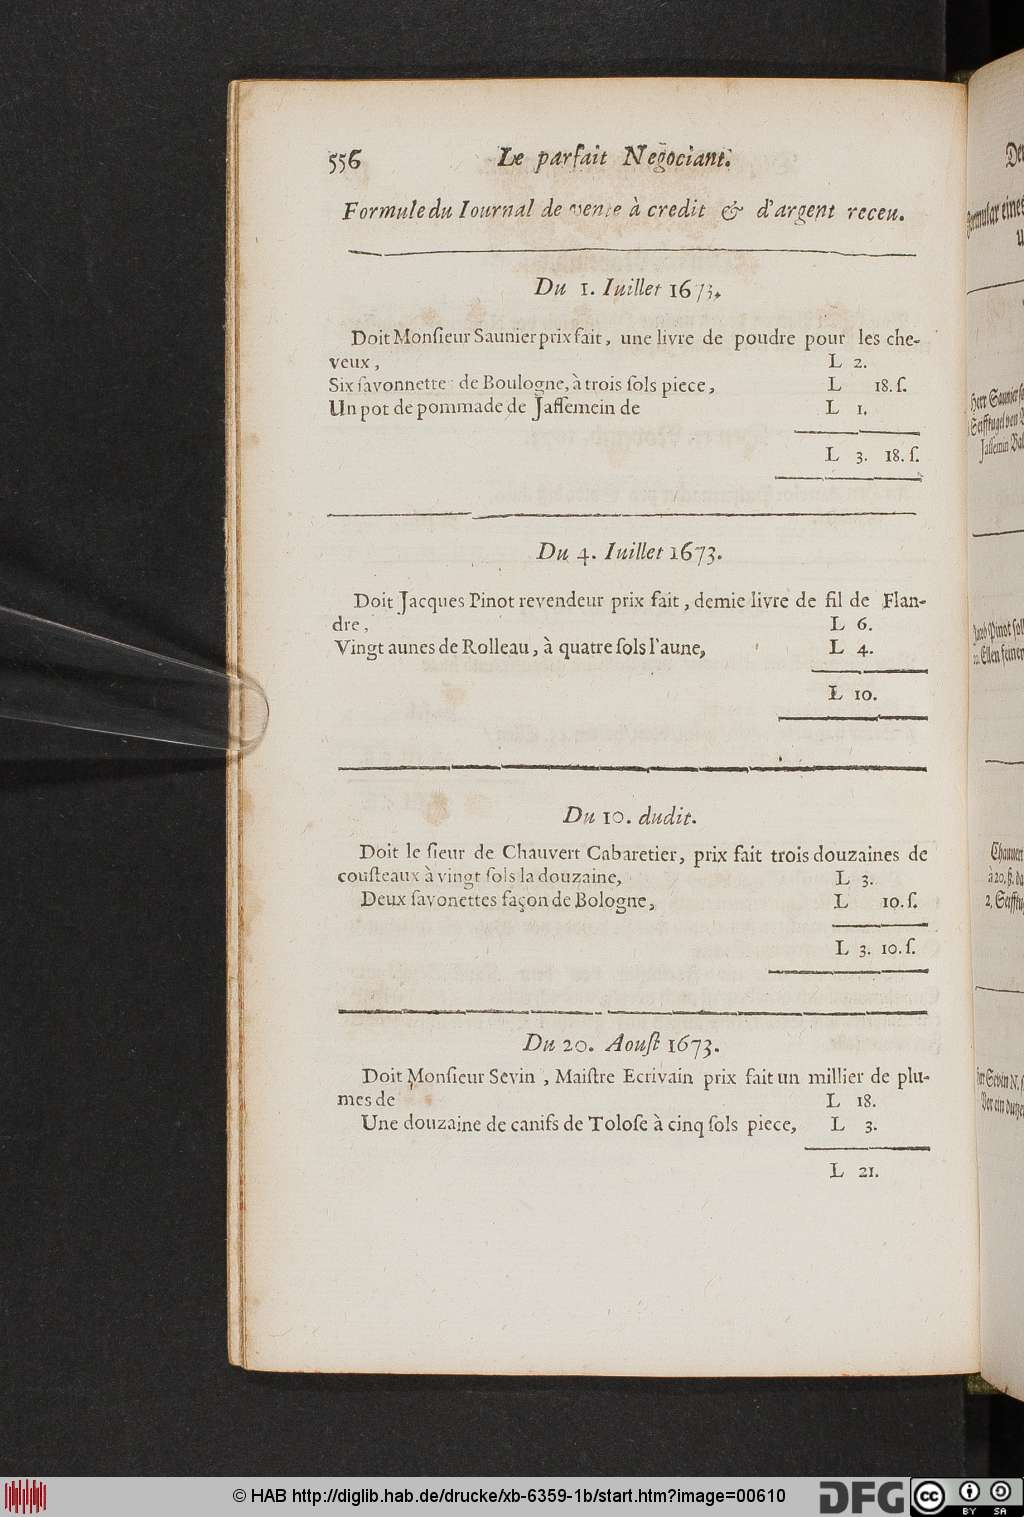 556 Le parfait Negociant.
Formule du Iournal de vente à credit & d'argent receu.
Du 1. Iuillet 1673.
Doit Monſieur Saunier prix fait, une livre de poudre pour les che-
veux, L 2.
Six ſavonnette de Boulogne, à trois ſols piece, L 18. ſ.
Un pot de pommade de Jaſſemein de L 1.
L 3. 18. ſ.
Du 4. Iuillet 1673.
Doit Jacques Pinot revendeur prix fait, demie livre de fil de Flan-
dre, L 6.
Vingt aunes de Rolleau, à quatre ſols l'aune, L 4.
L 10.
Du 10. dudit.
Doit le ſieur de Chauvert Cabaretier, prix fait trois douzaines de
couſteaux à vingt ſols la douzaine, L 3.
Deux ſavonettes façon de Bologne, L 10. ſ.
L 3. 10. ſ.
Du 20. Aouſt 1673.
Doit Monſieur Sevin, Maiſtre Ecrivain prix fait un millier de plu-
mes de L 18.
Une douzaine de canifs de Toloſe à cinq ſols piece, L 3.
L 21.
© HAB http://diglib.hab.de/drucke/xb-6359-1b/start.htm?image=00610
DFG cc BY SA